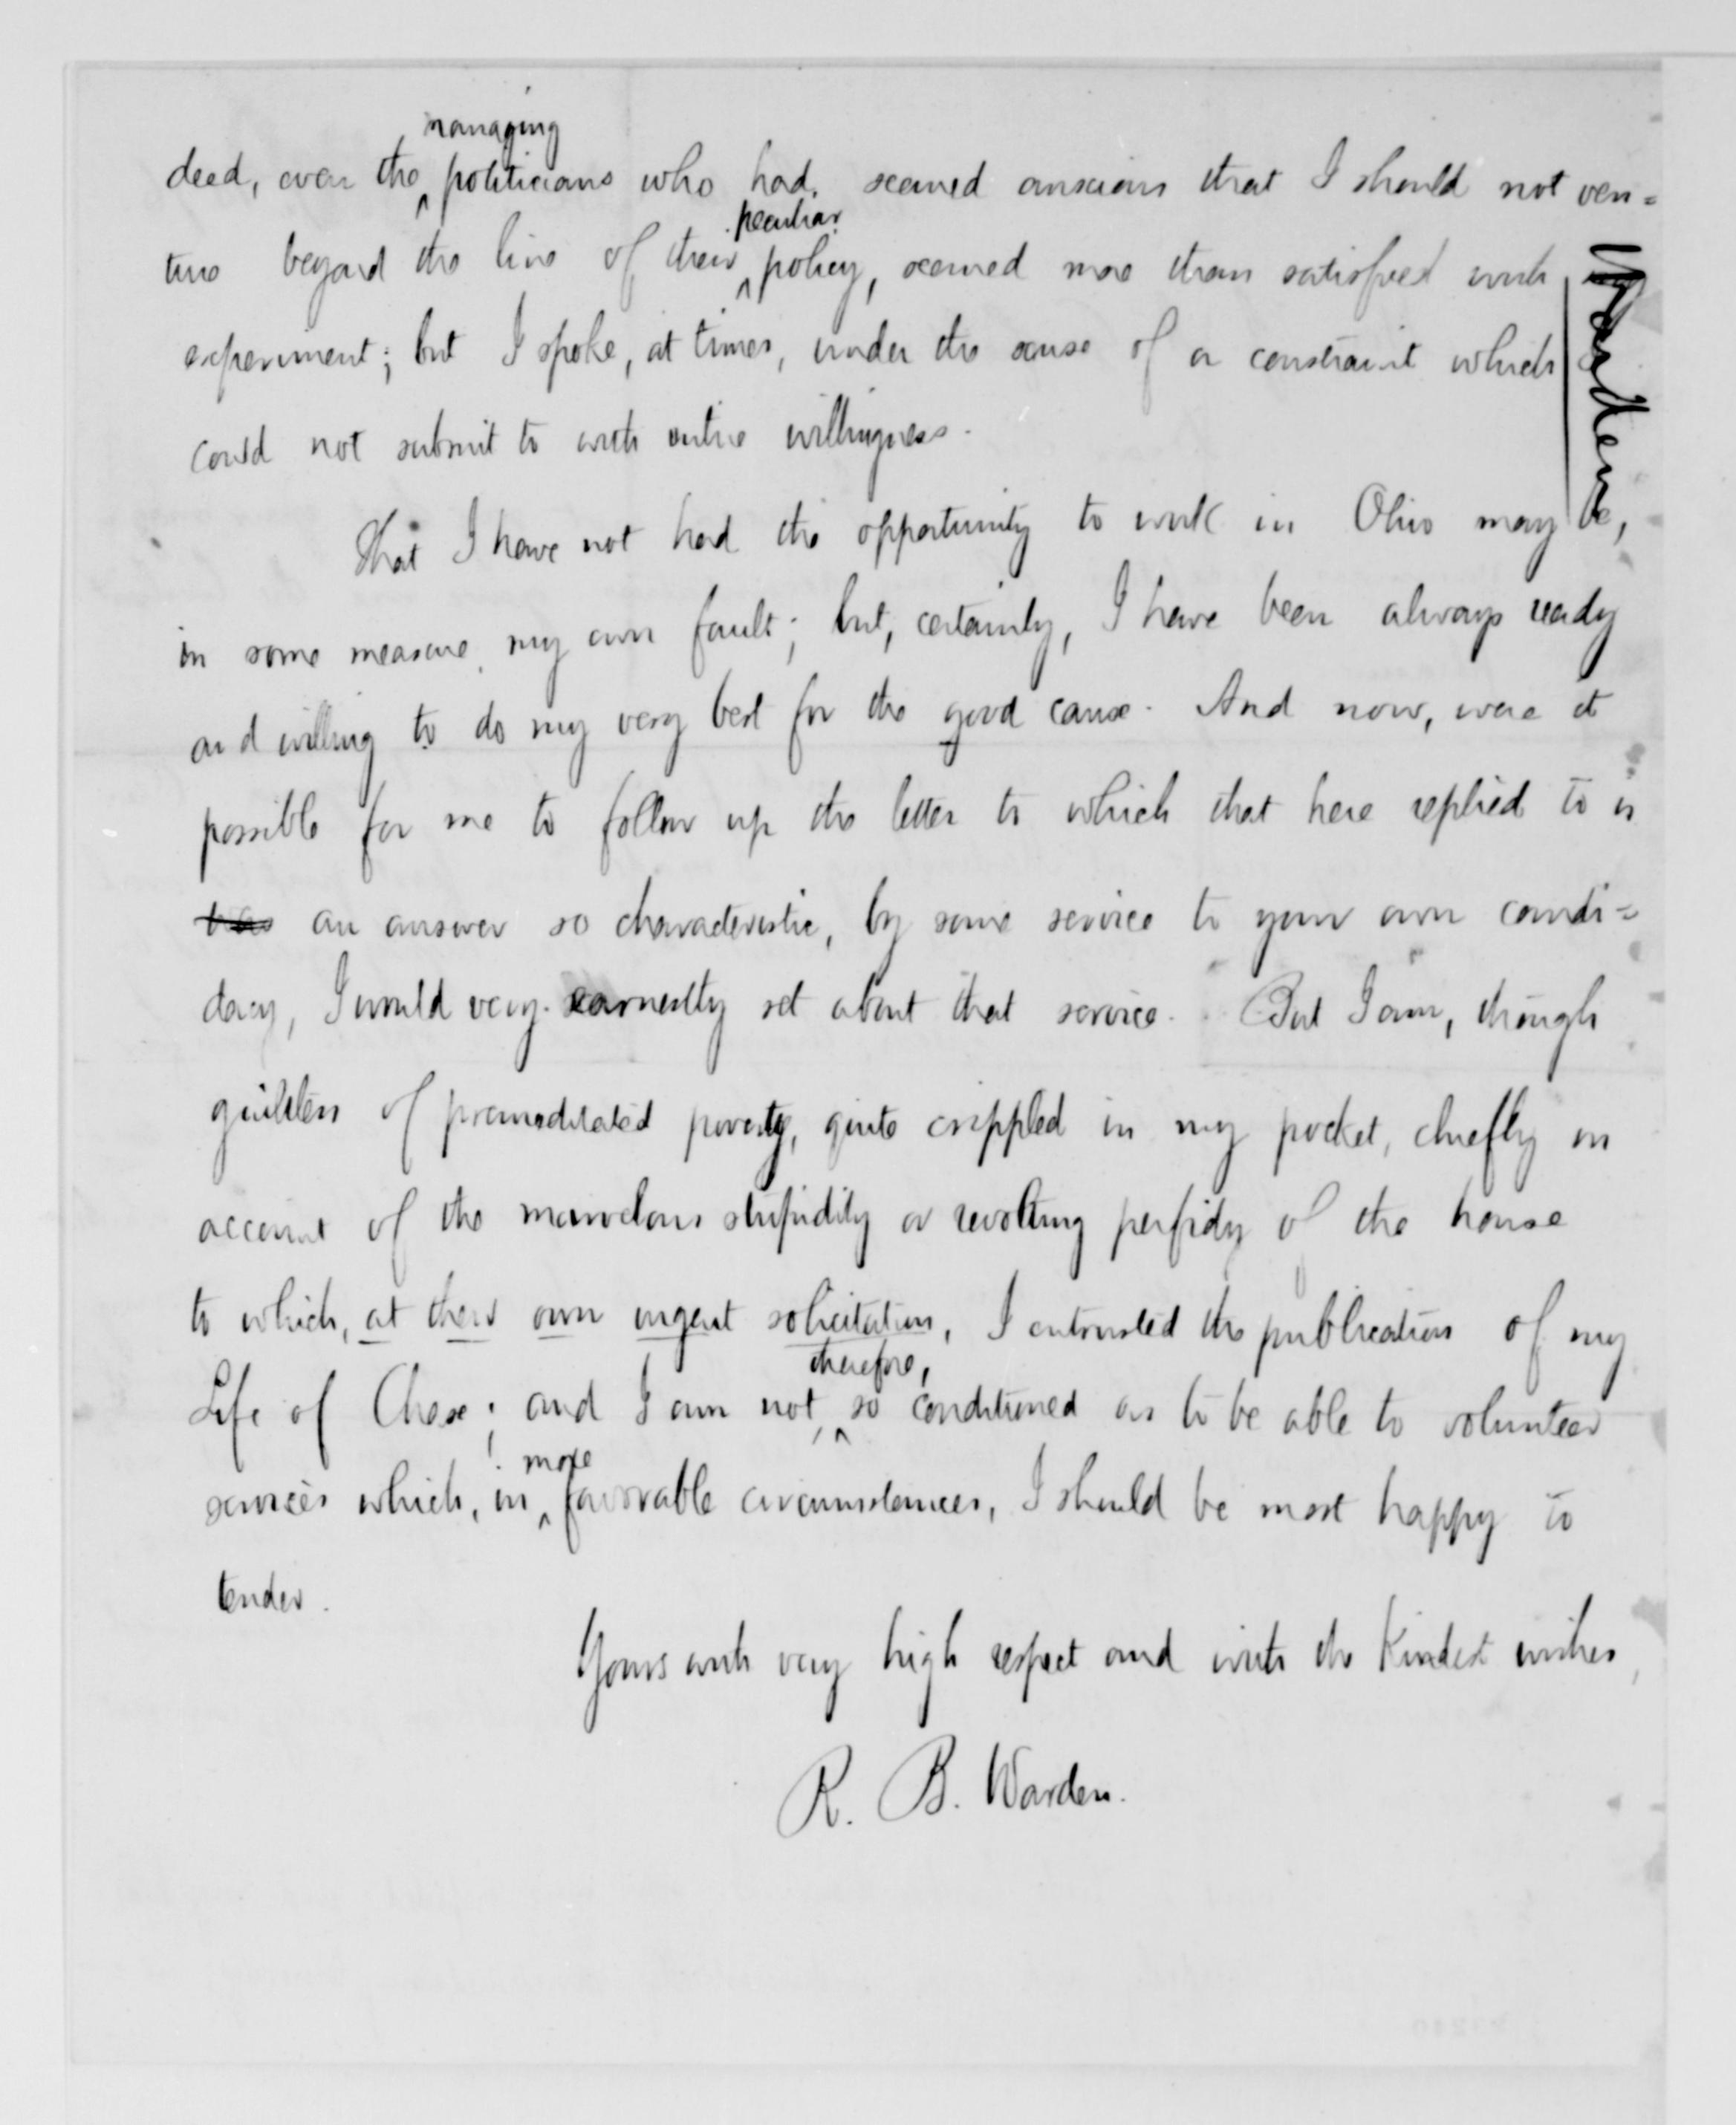 deed, even the managing politicians who had seemed anxious that I should not ven=
ture beyond the line of their peculiar policy, seemed more than satisfied with
experiment; but I spoke, at times, under the sense of a constraint which
could not submit to with entire willingness.
That I have not had the opportunity to work in Ohio may be,
in some measure, my own fault; but, certainly, I have been always ready
and willing to do my very best for the good cause. And now, were it
possible for me to follow up the letter to which that here replied to is
was an answer so characteristic, by some service to your own candi=
dacy, I would very earnestly set about that service. But I am, though
guiltless of premeditated poverty, quite crippled in my pocket, chiefly on
account of the marvelous stupidity or revolting perfidy of the house
to which, at their own urgent solicitation, I entrusted the publication of my
Life of Chase; and I am not, therefore, so conditioned as to be able to volunteer
services which, in more favorable circumstances, I should be most happy to
tender.
Yours with very high respect and with the kindest wishes,
R. B. Warden.
Warden